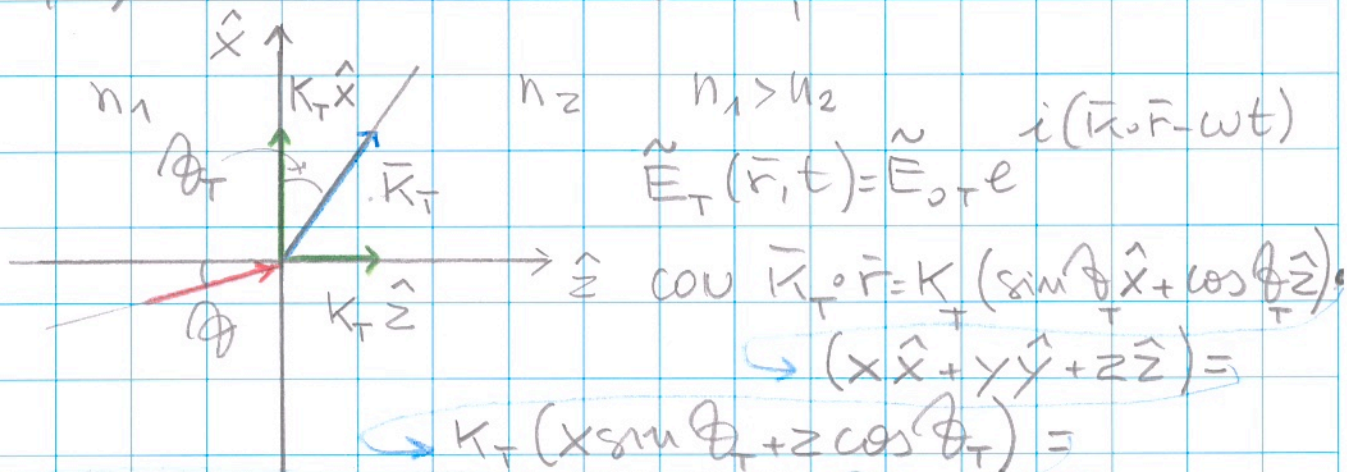 x̂
n₁ K_T x̂ n₂ n₁ > n₂
θ_T K̄_T Ẽ_T (r̄, t) = Ẽ_0T e^{i(k̄∘r̄ - ωt)}
ẑ con k̄_T∘r̄ = K_T (sinθ_T x̂ + cosθ_T ẑ)•
θ K_T ẑ
(x x̂ + y ŷ + z ẑ) =
K_T (x sinθ_T + z cosθ_T) =